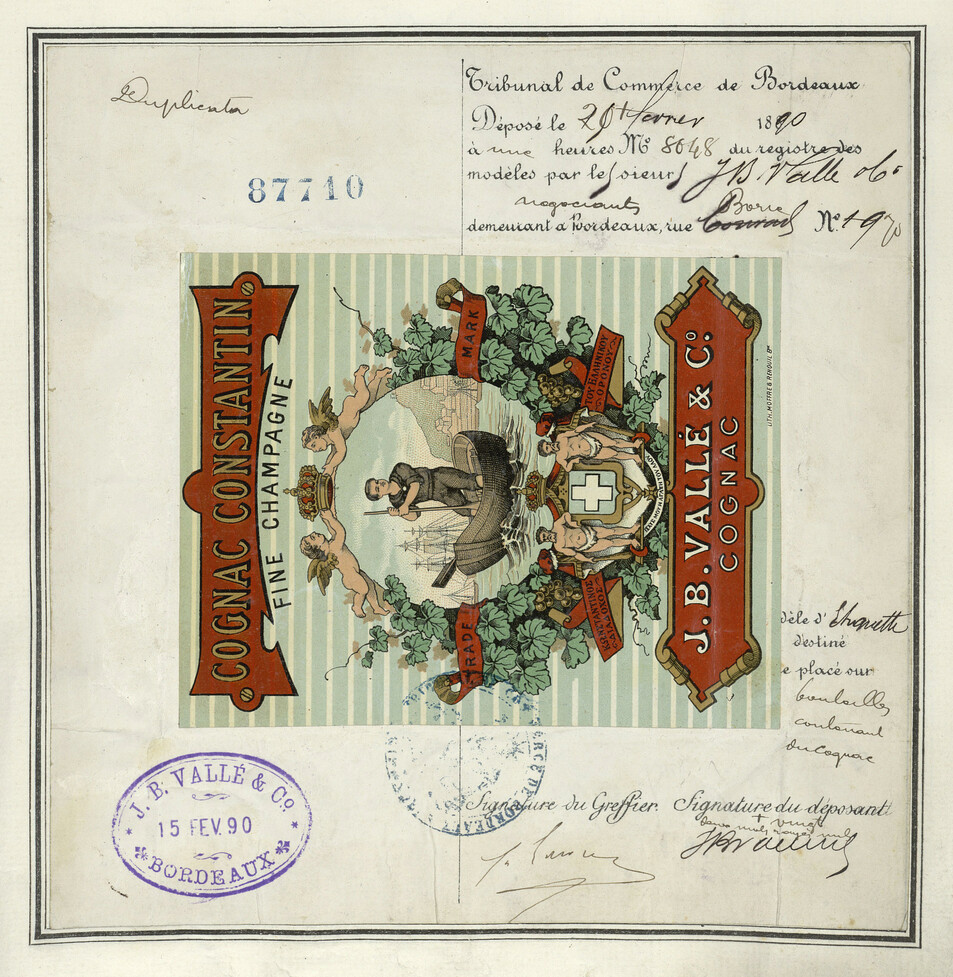 Duplicata
87710
Tribunal de Commerce de Bordeaux
Déposé le 20 février 1890
à une heures No 8048 du registre des
modèles par le sieur J B. Valle & Co
négociants
demeurant à Bordeaux, rue Borie No 19
COGNAC CONSTANTIN
FINE CHAMPAGNE
TRADE MARK
ΤΟΥ ΕΛΛΗΝΙΚΟΥ
ΘΡΟΝΟΥ
ΚΩΝΣΤΑΝΤΙΝΟΣ
ΔΙΑΔΟΧΟΣ
J. B. VALLÉ & Co.
COGNAC
dèle d'Etiquette
destiné
e placé sur
bouteilles
contenant
du Cognac
J. B. VALLÉ & Co.
15 FEV. 90
BORDEAUX
Signature du Greffier. Signature du déposant